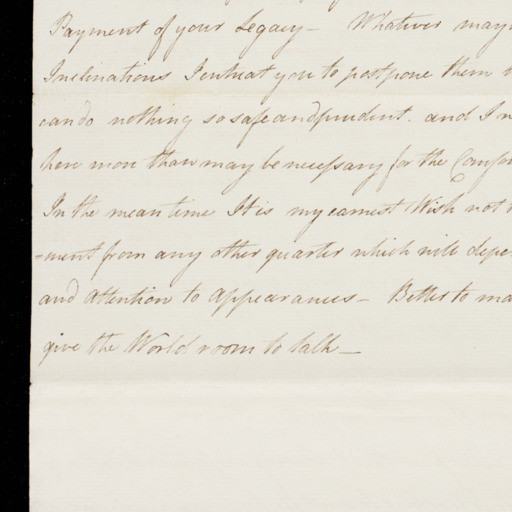 Payment of your Legacy – Whatever may
Inclinations I entreat you to postpone them
can do nothing so safe and prudent. and I
here more than may be necessary for the
In the mean time It is my earnest Wish not
-ment from any other quarter which will
and attention to Appearances – Better to
give the World room to talk –